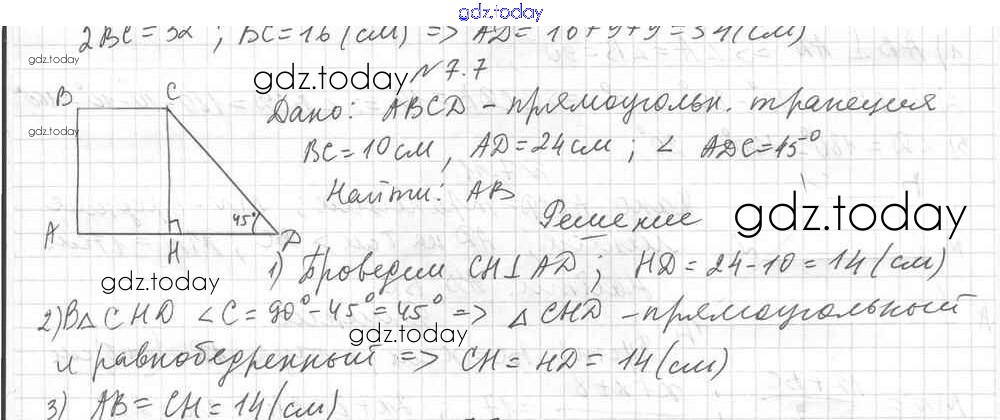 gdz.today
2BC = 32 ; BC = 16 (см) => AD = 16+9+9 = 34 (см)
gdz.today
gdz.today
№ 7.7
B C
Дано: ABCD - прямоугольн. трапеция
gdz.today
BC = 10 см, AD = 24 см ; ∠ ADC = 45°
Найти: AB
Решение
gdz.today
45°
A H D
1) Проведем CH ⊥ AD ; HD = 24 - 10 = 14 (см)
gdz.today
2) В △ CHD ∠C = 90° - 45° = 45° => △ CHD - прямоугольный
gdz.today
и равнобедренный => CH = HD = 14 (см)
3) AB = CH = 14 (см)